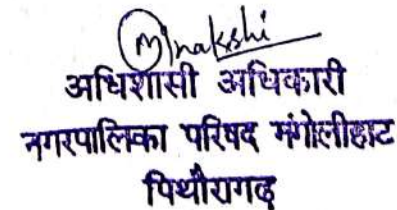 Minakshi
अधिशासी अधिकारी
नगरपालिका परिषद गंगोलीहाट
पिथौरागढ